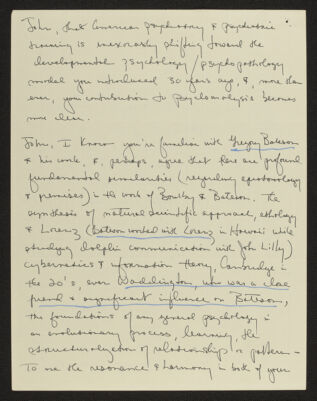 John, that American psychiatry & psychiatric
training is inexorably shifting toward the
developmental psychology/psychopathology
model you introduced 30 years ago, &, more than
ever, your contribution to psychoanalysis becomes
more clear.
John, I know you're familiar with Gregory Bateson
& his work, &, perhaps, agree that there are profound
fundamental similarities (regarding epistemology
& premises) in the work of Bowlby & Bateson. The
synthesis of natural scientific approach, ethology
& Lorenz (Bateson worked with Lorenz in Hawaii while
studying dolphin communication with John Lilly)
cybernetics & information theory, Cambridge in
the 20's, even Waddington, who was a close
friend & significant influence on Bateson,
the foundations of any general psychology in
an evolutionary process, learning, the
of relationship & pattern –
To me the resonance & harmony in both of your